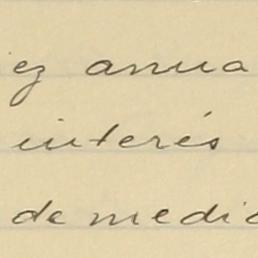 ez anua
interés
de medic